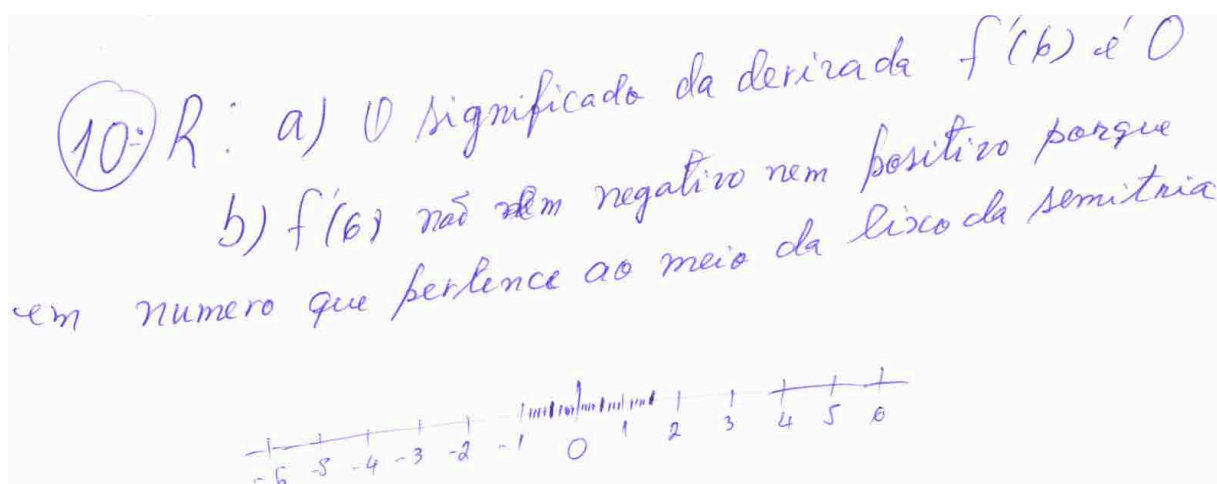 10ª) R: a) O significado da derivada f'(6) é 0
b) f'(6) não nem negativo nem positivo porque
em numero que pertence ao meio da lixo da semitria
-6 -5 -4 -3 -2 -1 0 1 2 3 4 5 6